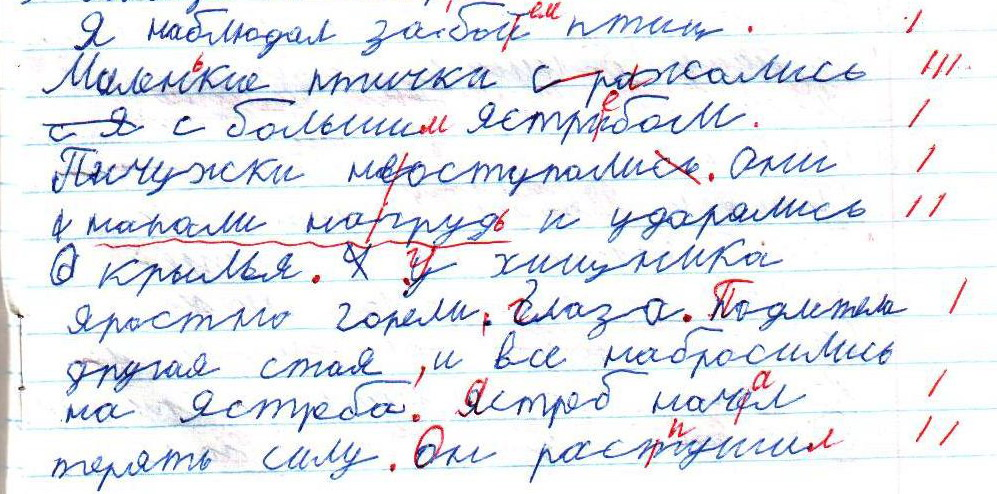 Я наблюдал за боем птиц.
Маленькие птички сражались
с большим ястребом.
Пичужки не оступались. Они
напали на грудь и ударялись
о крылья. У хищника
яростно горели глаза. Подлетела
другая стая, и все набросились
на ястреба. Ястреб начал
терять силу. Он распушил